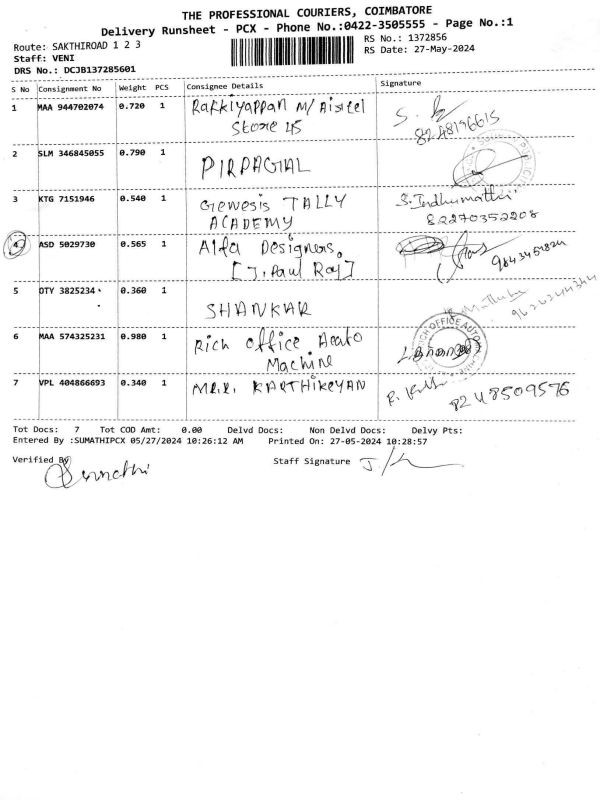 THE PROFESSIONAL COURIERS, COIMBATORE
Delivery Runsheet - PCX - Phone No.:0422-3505555 - Page No.:1
Route: SAKTHIROAD 1 2 3
RS No.: 1372856
Staff: VENI
RS Date: 27-May-2024
DRS No.: DCJB137285601
S No Consignment No Weight PCS Consignee Details Signature
1 MAA 944702074 0.720 1 Rakkiyappan M/ Airtel
Store 45
8248196615
2 SLM 346845055 0.790 1 PIRPAGIAL
3 KTG 7151946 0.540 1 Genesis TALLY
ACADEMY
S. Indhumathi
82270352208
4 ASD 5029730 0.565 1 Alfa Designers.
[J. Paul Roy]
9643454824
5 OTY 3825234 0.360 1 SHANKAR
9626244344
6 MAA 574325231 0.980 1 Rich office Aeato
Machine
RICH OFFICE AUTO
7 VPL 404866693 0.340 1 Mr. KARTHIKEYAN
8248509576
Tot Docs: 7 Tot COD Amt: 0.00 Delvd Docs: Non Delvd Docs: Delvy Pts:
Entered By :SUMATHIPCX 05/27/2024 10:26:12 AM Printed On: 27-05-2024 10:28:57
Verified By
Sumathi
Staff Signature